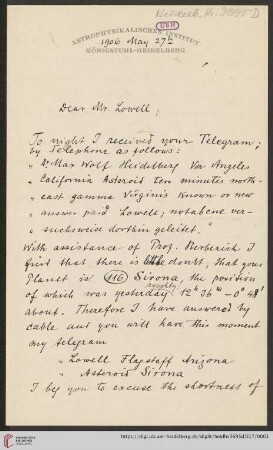 Heidelb. Hs. 3695 D
UBH
ASTROPHYSIKALISCHES INSTITUT
KÖNIGSTUHL-HEIDELBERG
1906 May 27th
Dear Mr. Lowell;
To night I received your Telegram;
by Telephone as follows:
" Dr Max Wolf Heidelberg Via Angeles
" California Asteroid ten minutes north-
" east gamma Virginis Known or new
" answer paid Lowele; notabene ver-
" suchsweise dorthin geleitet."
With assistance of Prof. Berberich I
find that there is little doubt, that your
Planet is (116) Sirona, the position
of which was yesterday roughly 12h 36m − 0° 48'
about. Therefore I have answered by
cable and you will have this moment
my telegram
" Lowell Flagstaff Arizona
" Asteroid Sirona
I beg you to excuse the shortness of
UNIVERSITÄTS-
BIBLIOTHEK
HEIDELBERG
http://digi.ub.uni-heidelberg.de/diglit/heidhs3695d1317/0001